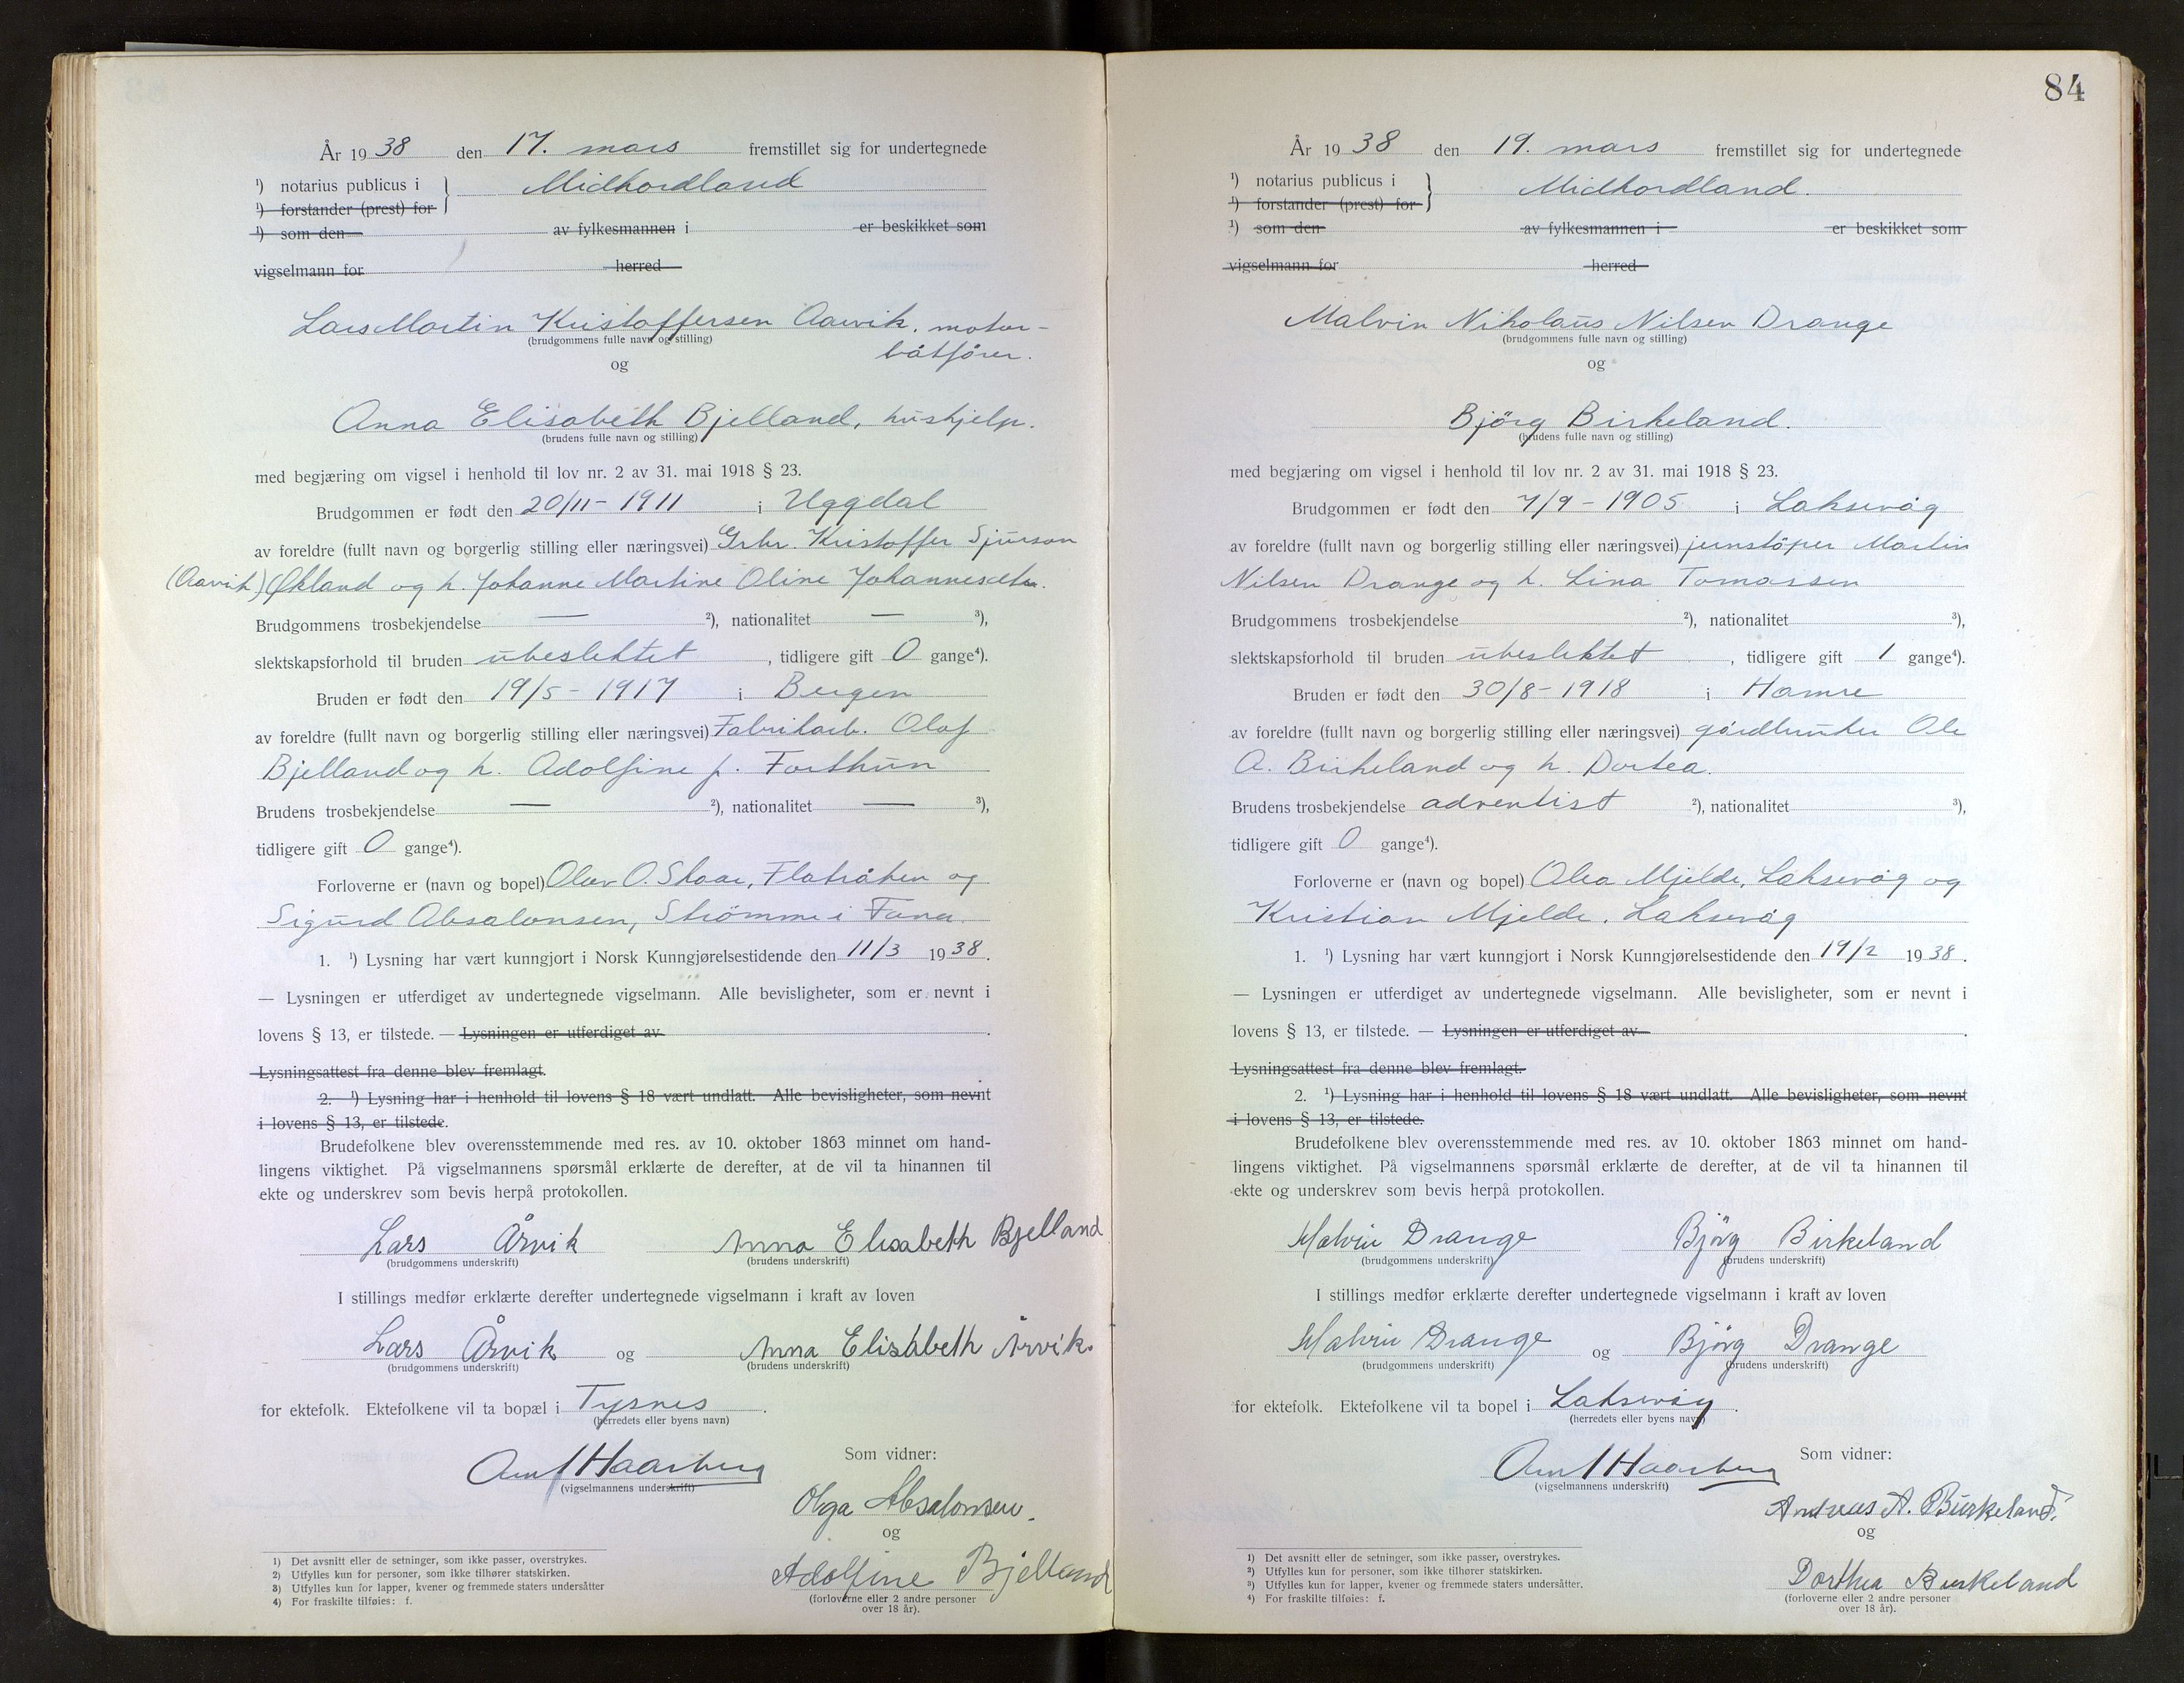 År 1938 den 17. mars fremstillet sig for undertegnede
¹) notarius publicus i Midhordland
¹) forstander (prest) for
¹) som den av fylkesmannen i er beskikket som
vigselmann for herred
Lars Martin Kristoffersen Aarvik, motor-
(brudgommens fulle navn og stilling)
båtfører.
og
Anna Elisabeth Bjelland, hushjelp.
(brudens fulle navn og stilling)
med begjæring om vigsel i henhold til lov nr. 2 av 31. mai 1918 § 23.
Brudgommen er født den 20/11 - 1911 i Uggdal
av foreldre (fullt navn og borgerlig stilling eller næringsvei) Grbr. Kristoffer Sjurson
(Aarvik) Økland og h. Johanne Martine Oline Johannesdtr.
Brudgommens trosbekjendelse — ²), nationalitet — ³),
slektskapsforhold til bruden ubeslektet, tidligere gift 0 gange⁴).
Bruden er født den 19/5 - 1917 i Bergen
av foreldre (fullt navn og borgerlig stilling eller næringsvei) Fabrikarb. Olaf
Bjelland og h. Adolfine f. Forthun
Brudens trosbekjendelse — ²), nationalitet — ³),
tidligere gift 0 gange⁴).
Forloverne er (navn og bopel) Olav O. Skaar, Flatråken og
Sigurd Absalonsen, Strømme i Fana.
1. ¹) Lysning har vært kunngjort i Norsk Kunngjørelsestidende den 11/3 1938.
— Lysningen er utferdiget av undertegnede vigselmann. Alle bevisligheter, som er nevnt i
lovens § 13, er tilstede. — Lysningen er utferdiget av .
Lysningsattest fra denne blev fremlagt.
2. ¹) Lysning har i henhold til lovens § 18 vært undlatt. Alle bevisligheter, som nevnt
i lovens § 13, er tilstede.
Brudefolkene blev overensstemmende med res. av 10. oktober 1863 minnet om hand-
lingens viktighet. På vigselmannens spørsmål erklærte de derefter, at de vil ta hinannen til
ekte og underskrev som bevis herpå protokollen.
Lars Årvik Anna Elisabeth Bjelland
(brudgommens underskrift) (brudens underskrift)
I stillings medfør erklærte derefter undertegnede vigselmann i kraft av loven
Lars Årvik og Anna Elisabeth Årvik.
(brudgommens underskrift) (brudens underskrift)
for ektefolk. Ektefolkene vil ta bopæl i Tysnes.
(herredets eller byens navn)
Som vidner:
Haarberg
(vigselmannens underskrift)
Olga Absalonsen.
og
Adolfine Bjelland
(forloverne eller 2 andre personer
over 18 år).
1) Det avsnitt eller de setninger, som ikke passer, overstrykes.
2) Utfylles kun for personer, som ikke tilhører statskirken.
3) Utfylles kun for lapper, kvener og fremmede staters undersåtter
4) For fraskilte tilføies: f.
84
År 1938 den 19. mars fremstillet sig for undertegnede
¹) notarius publicus i Midhordland.
¹) forstander (prest) for
¹) som den av fylkesmannen i er beskikket som
vigselmann for herred
Malvin Nikolaus Nilsen Drange
(brudgommens fulle navn og stilling)
og
Bjørg Birkeland.
(brudens fulle navn og stilling)
med begjæring om vigsel i henhold til lov nr. 2 av 31. mai 1918 § 23.
Brudgommen er født den 7/9 - 1905 i Laksevåg
av foreldre (fullt navn og borgerlig stilling eller næringsvei) jernstøper Martin
Nilsen Drange og h. Lina Tomassen
Brudgommens trosbekjendelse ²), nationalitet ³),
slektskapsforhold til bruden ubeslektet, tidligere gift 1 gange⁴).
Bruden er født den 30/8 - 1918 i Hamre
av foreldre (fullt navn og borgerlig stilling eller næringsvei) gårdbruker Ole
A. Birkeland og h. Dortea.
Brudens trosbekjendelse adventist ²), nationalitet ³),
tidligere gift 0 gange⁴).
Forloverne er (navn og bopel) Olea Mjelde, Laksevåg og
Kristian Mjelde, Laksevåg
1. ¹) Lysning har vært kunngjort i Norsk Kunngjørelsestidende den 19/2 1938.
— Lysningen er utferdiget av undertegnede vigselmann. Alle bevisligheter, som er nevnt i
lovens § 13, er tilstede. — Lysningen er utferdiget av .
Lysningsattest fra denne blev fremlagt.
2. ¹) Lysning har i henhold til lovens § 18 vært undlatt. Alle bevisligheter, som nevnt
i lovens § 13, er tilstede.
Brudefolkene blev overensstemmende med res. av 10. oktober 1863 minnet om hand-
lingens viktighet. På vigselmannens spørsmål erklærte de derefter, at de vil ta hinannen til
ekte og underskrev som bevis herpå protokollen.
Malvin Drange Bjørg Birkeland
(brudgommens underskrift) (brudens underskrift)
I stillings medfør erklærte derefter undertegnede vigselmann i kraft av loven
Malvin Drange og Bjørg Drange
(brudgommens underskrift) (brudens underskrift)
for ektefolk. Ektefolkene vil ta bopel i Laksevåg.
(herredets eller byens navn)
Som vidner:
Haarberg
(vigselmannens underskrift)
Andreas A. Birkeland.
og
Dorthea Birkeland
(forloverne eller 2 andre personer
over 18 år).
¹) Det avsnitt eller de setninger, som ikke passer, overstrykes.
²) Utfylles kun for personer, som ikke tilhører statskirken.
³) Utfylles kun for lapper, kvener og fremmede staters undersåtter.
⁴) For fraskilte tilføies: f.